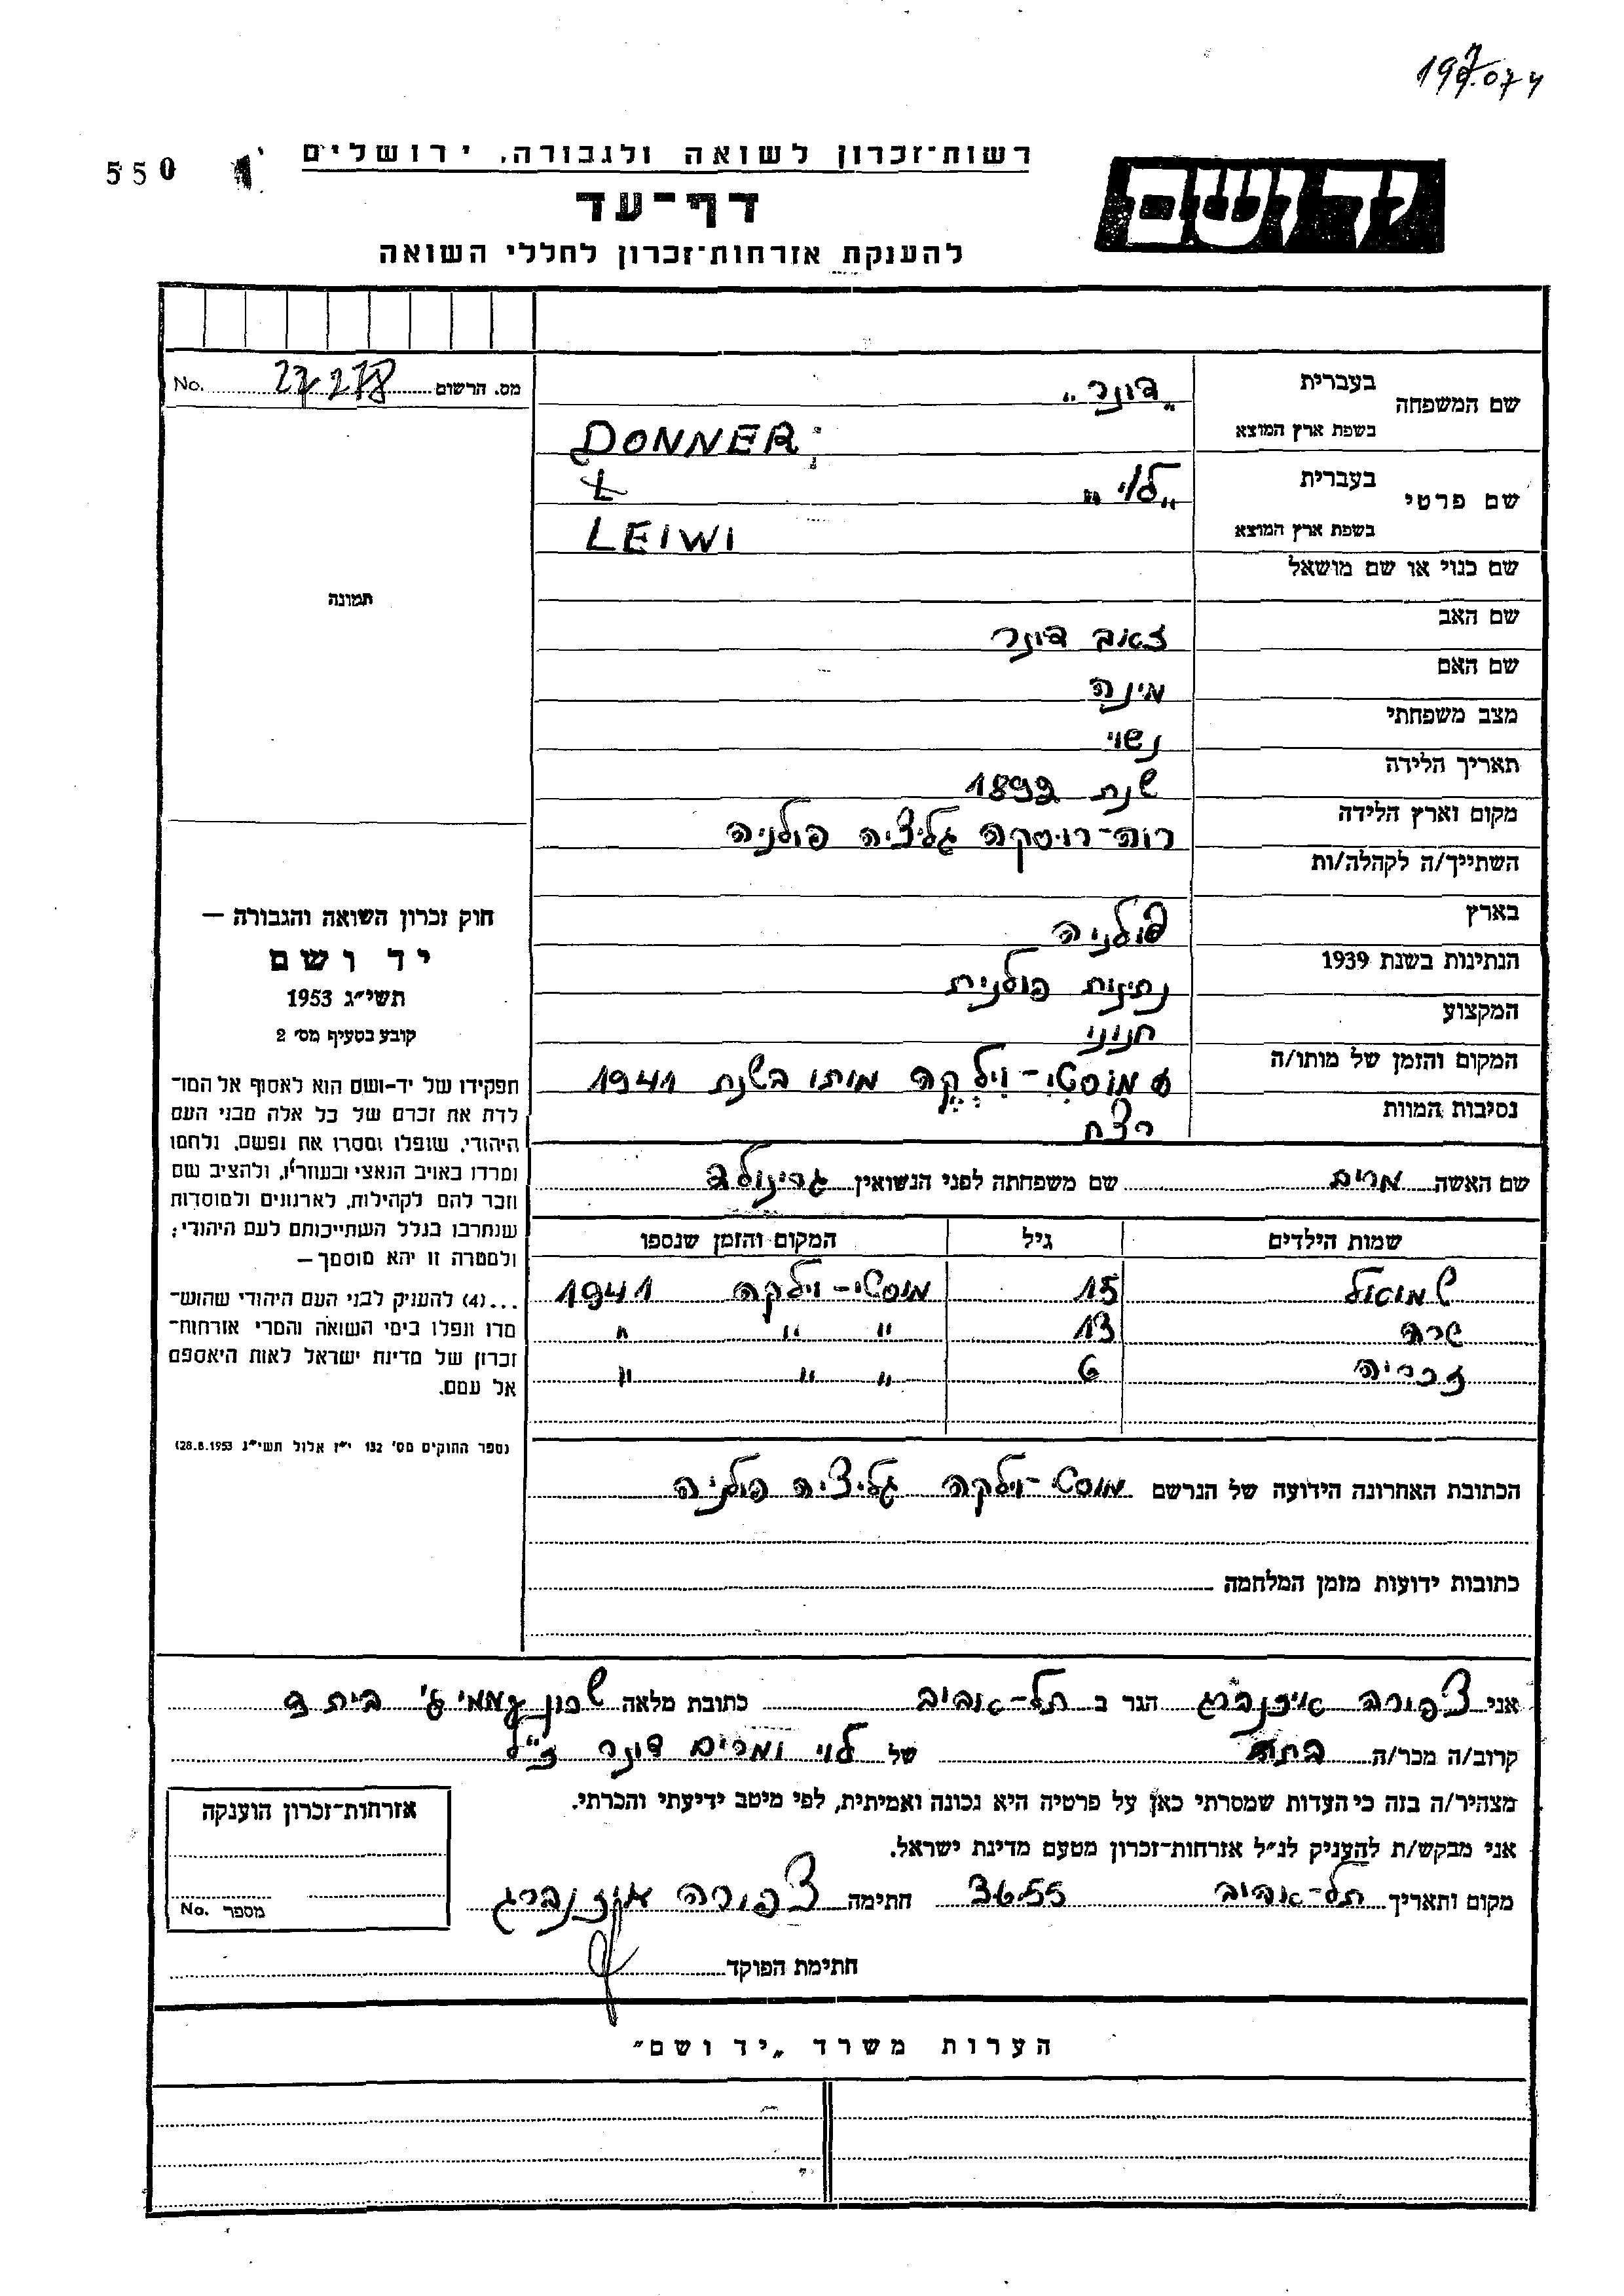 197.074
550
רשות־זכרון לשואה ולגבורה, ירושלים
יד ושם
דף־עד
להענקת אזרחות־זכרון לחללי השואה
No. 27278 מס. הרשום
תמונה
שם המשפחה בעברית "דונר"
בשפת ארץ המוצא DONNER
שם פרטי בעברית "לוי"
בשפת ארץ המוצא LEIWI
שם כנוי או שם מושאל
שם האב זאב דונר
שם האם מינה
מצב משפחתי נשוי
תאריך הלידה שנת 1892
מקום וארץ הלידה רוה־רוסקה גליציה פולניה
השתייך/ה לקהלה/ות
בארץ פולניה
הנתינות בשנת 1939 נתינות פולנית
המקצוע חנוני
המקום והזמן של מותו/ה מוסטי־וילקה מותו בשנת 1941
נסיבות המוות רצח
שם האשה מרים שם משפחתה לפני הנשואין גרינולד
שמות הילדים גיל המקום והזמן שנספו
שמואל 15 מוסטי־וילקה 1941
שרה 13 " " "
זכריה 6 " " "
חוק זכרון השואה והגבורה —
יד ושם
תשי״ג 1953
קובע בסעיף מס׳ 2
תפקידו של יד־ושם הוא לאסוף אל המו־
לדת את זכרם של כל אלה מבני העם
היהודי, שנפלו ומסרו את נפשם, נלחמו
ומרדו באויב הנאצי ובעוזריו, ולהציב שם
וזכר להם לקהילות, לארגונים ולמוסדות
שנחרבו בגלל השתייכותם לעם היהודי;
ולמטרה זו יהא מוסמך —
...(4) להעניק לבני העם היהודי שהוש־
מדו ונפלו בימי השואה והמרי אזרחות־
זכרון של מדינת ישראל לאות היאספם
אל עמם.
(ספר החוקים מס׳ 132 י״ז אלול תשי״ג 28.8.1953)
הכתובת האחרונה הידועה של הנרשם מוסטי־וילקה גליציה פולניה
כתובות ידועות מזמן המלחמה
אני צפורה איזנברג הגר ב תל־אביב כתובת מלאה שכון עממי ג' בית 7
קרוב/ה מכר/ה בתם של לוי ומרים דונר ז"ל
מצהיר/ה בזה כי העדות שמסרתי כאן על פרטיה היא נכונה ואמיתית, לפי מיטב ידיעתי והכרתי.
אני מבקש/ת להעניק לנ״ל אזרחות־זכרון מטעם מדינת ישראל.
מקום ותאריך תל־אביב 3.6.55 חתימה צפורה איזנברג
חתימת הפוקד
אזרחות־זכרון הוענקה
מספר No.
הערות משרד „יד ושם״